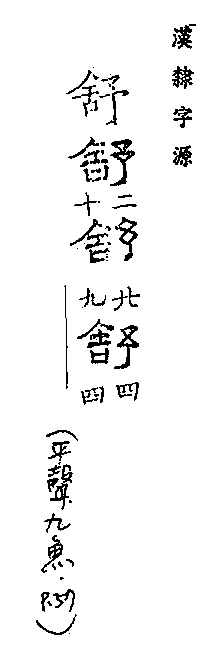 漢隸字源
舒
舒
二十
舒
廿九
舒
四四
(平聲九魚·P.57)